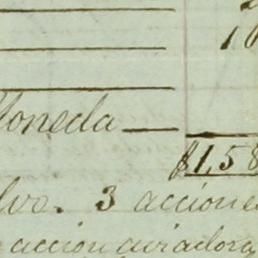 10
Moneda
$1,58
lvo. 3 acciones
accion aviadora